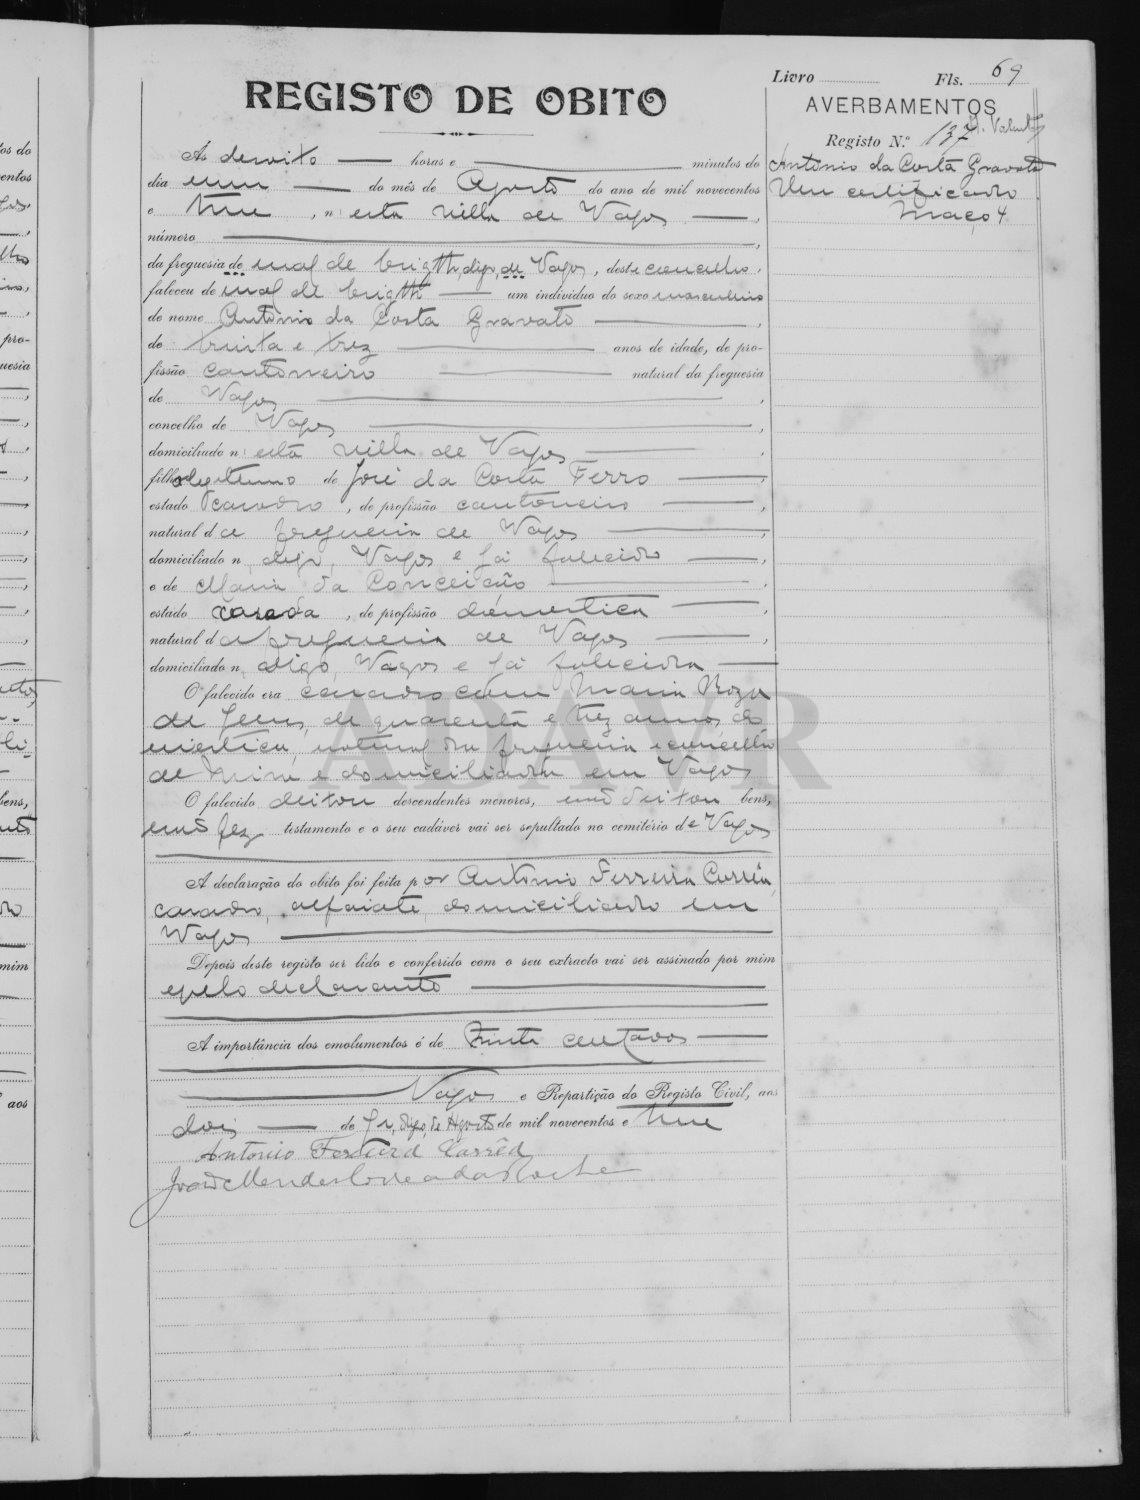 Livro Fls. 69
REGISTO DE OBITO
AVERBAMENTOS
Registo N.º 137
Antonio da Costa Gravato
Um certificado
Maço 4
Ás dezoito horas e minutos do
dia um do mês de Agosto do ano de mil novecentos
e treze, n esta villa de Vagos,
número
da freguesia de mal de brigth, digo, de Vagos, deste concelho,
faleceu de mal de brigth um indivíduo do sexo masculino
de nome Antonio da Costa Gravato,
de trinta e trez anos de idade, de pro-
fissão cantoneiro natural da freguesia
de Vagos,
concelho de Vagos,
domiciliado n esta villa de Vagos,
filho legitimo de José da Costa Ferro,
estado casado, de profissão cantoneiro,
natural d a freguesia de Vagos,
domiciliado n, digo, Vagos e já falecido,
e de Maria da Conceição,
estado casada, de profissão domestica,
natural d a freguesia de Vagos,
domiciliado n, digo, Vagos e já falecida
O falecido era casado com Maria Roza
de Jesus, de quarenta e trez annos, do
mestica, natural da freguesia e concelho
de Mira e domiciliada em Vagos
O falecido deixou descendentes menores, não deixou bens,
não fez testamento e o seu cadáver vai ser sepultado no cemitério de Vagos
A declaração do obito foi feita por Antonio Ferreira Corrêa,
casado, alfaiate, domiciliado em
Vagos
Depois deste registo ser lido e conferido com o seu extracto vai ser assinado por mim
e pelo declarante
A importância dos emolumentos é de trinta centavos
Vagos e Repartição do Registo Civil, aos
dois de digo, de Agosto de mil novecentos e treze
Antonio Ferreira Corrêa
João Mendes Correia da Rocha
ADAVR